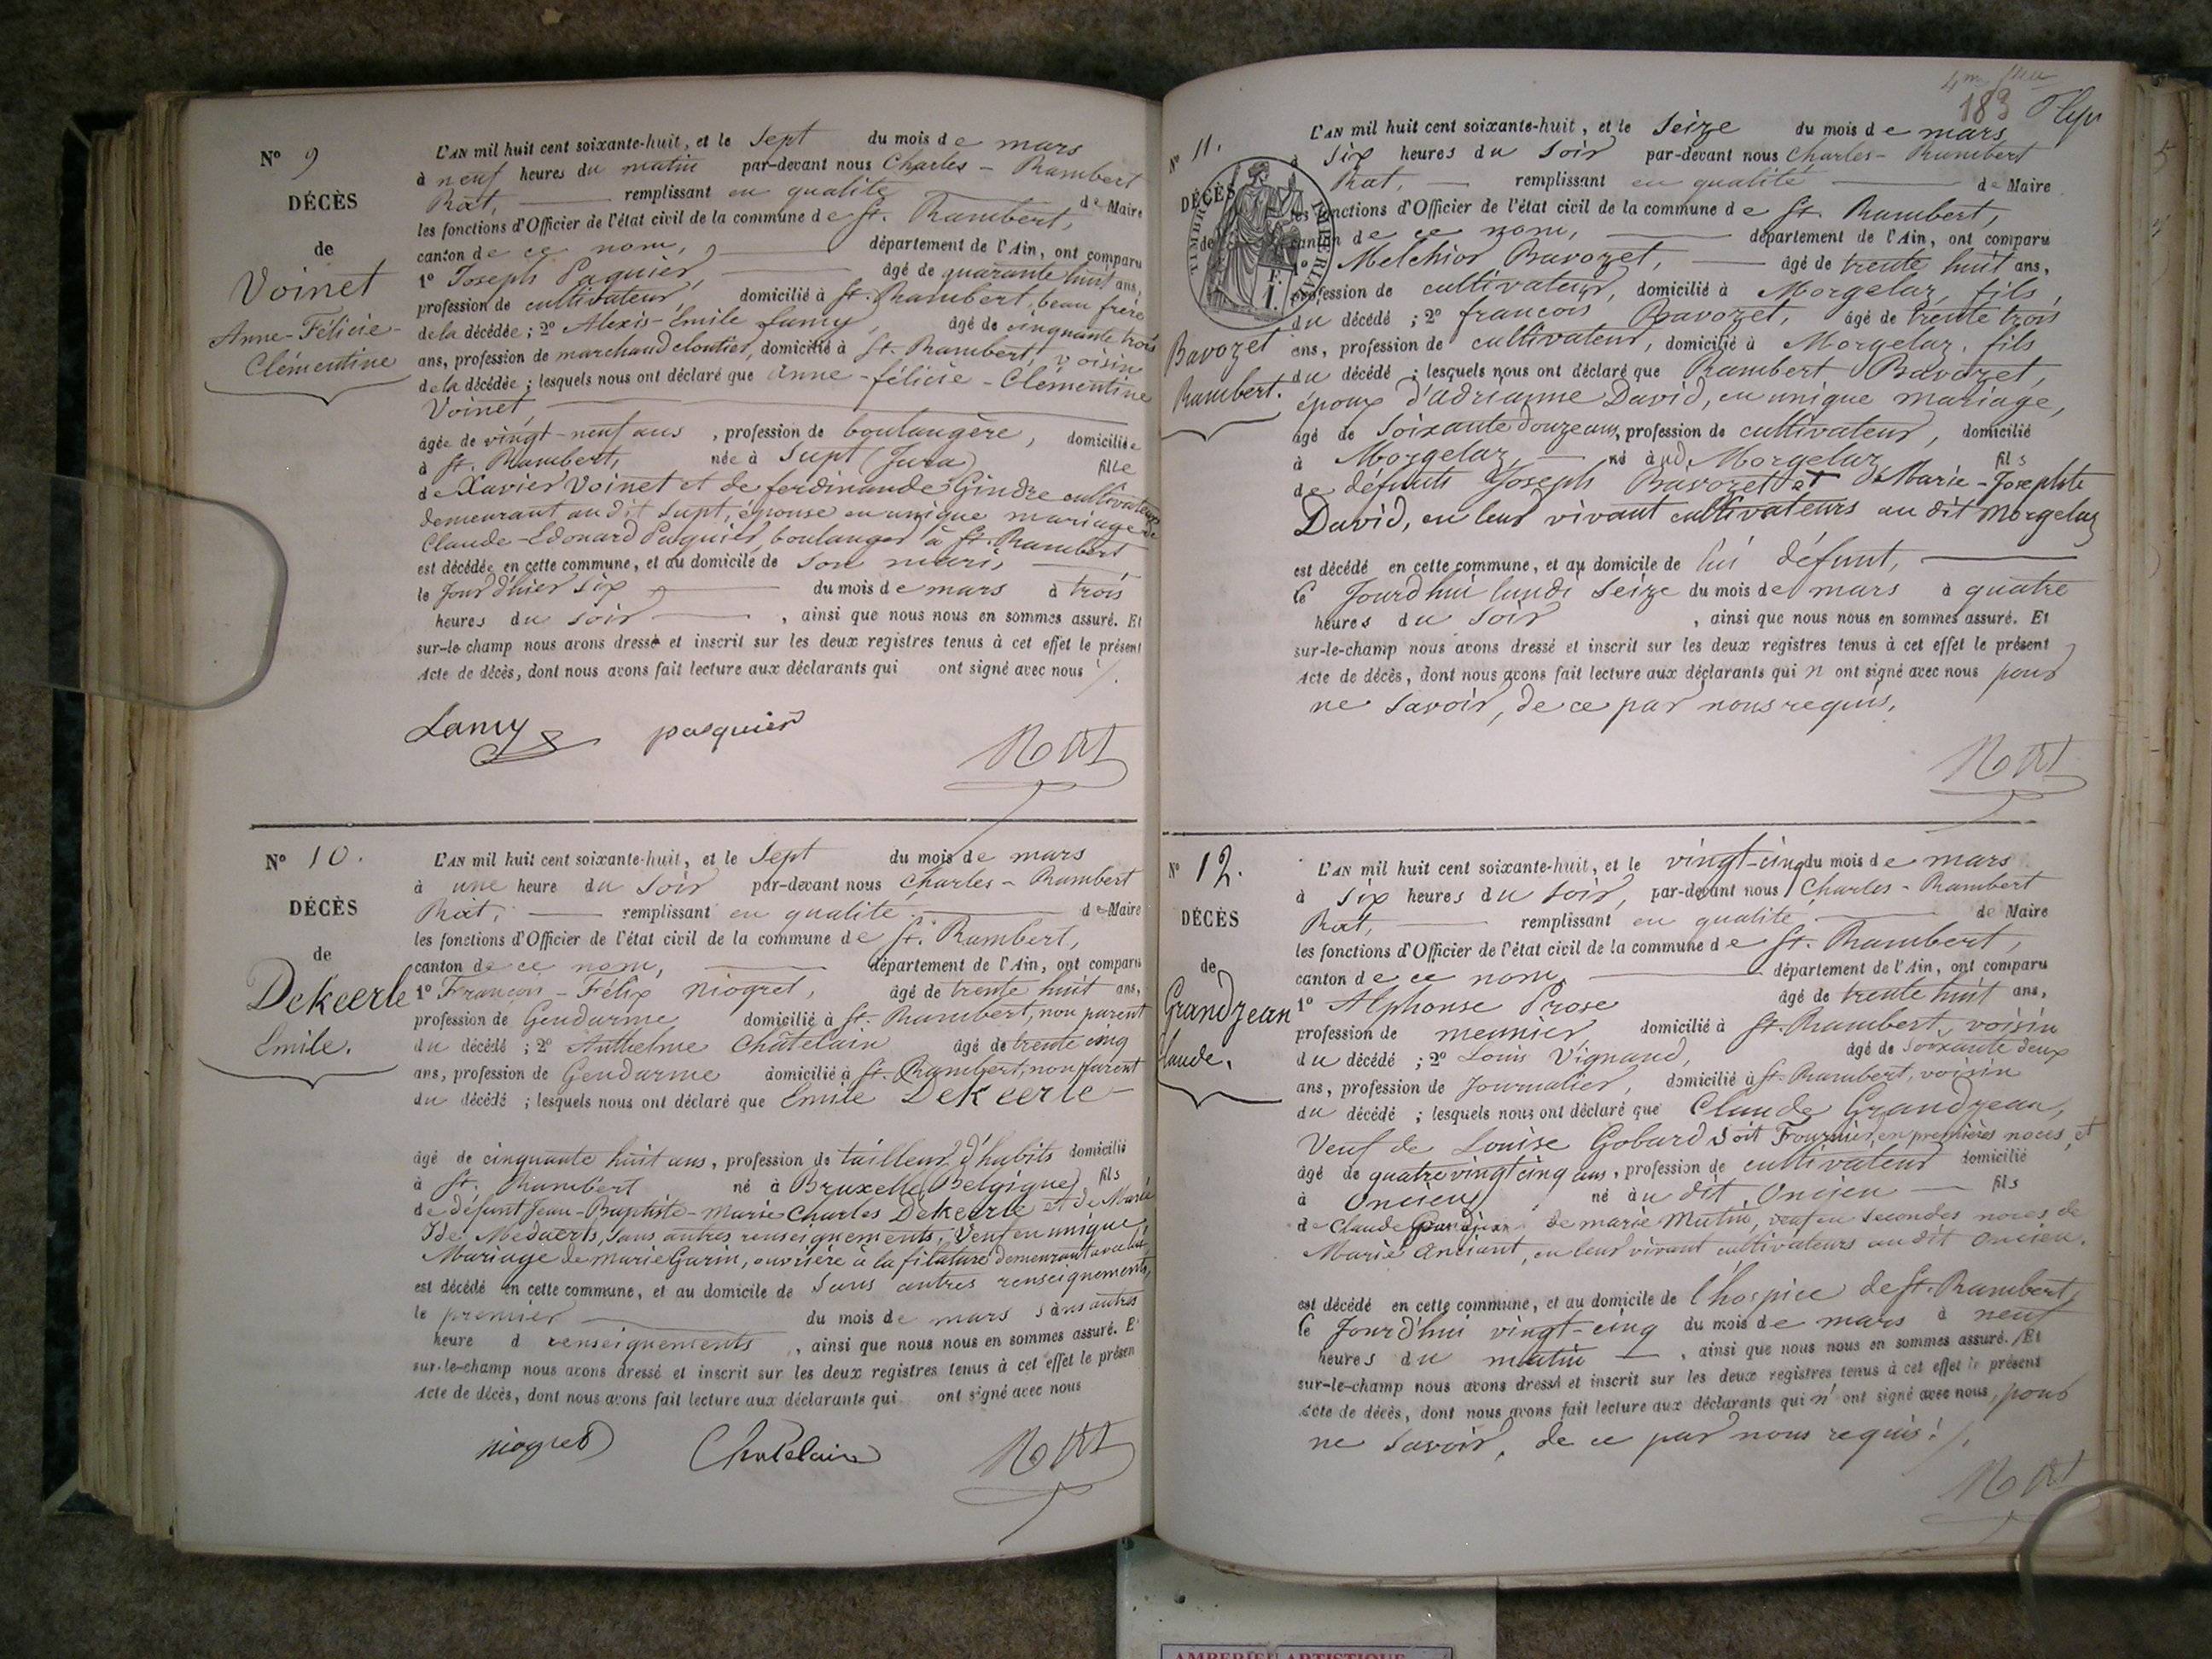 Nº 9
DÉCÈS
de
Voinet
Anne-Félicie-
Clémentine
L'AN mil huit cent soixante-huit, et le Sept du mois de mars
à neuf heures du matin par-devant nous Charles-Rambert
Rat, remplissant en qualité de Maire
les fonctions d'Officier de l'état civil de la commune de St. Rambert,
canton de ce nom, département de l'Ain, ont comparu
1º Joseph Paquier, âgé de quarante huit ans,
profession de cultivateur, domicilié à St. Rambert, beau frère
de la décédée ; 2º Alexis-Emile Lamy, âgé de cinquante trois
ans, profession de marchand cloutier, domicilié à St. Rambert, voisin
de la décédée ; lesquels nous ont déclaré que Anne-félicie-Clémentine
Voinet,
âgée de vingt-neuf ans, profession de boulangère, domiciliée
à St. Rambert, née à Supt (Jura) fille
de Xavier Voinet et de ferdinande Gindre cultivateurs
demeurant au dit Supt, épouse en unique mariage de
Claude-Edouard Paquier, boulanger à St. Rambert
est décédée en cette commune, et au domicile de son mari,
le jour d'hier six du mois de mars à trois
heures du soir, ainsi que nous nous en sommes assuré. Et
sur-le-champ nous avons dressé et inscrit sur les deux registres tenus à cet effet le présent
Acte de décès, dont nous avons fait lecture aux déclarants qui ont signé avec nous
Lamy pasquier Rat
Nº 10.
DÉCÈS
de
Dekeerle
Emile.
L'AN mil huit cent soixante-huit, et le Sept du mois de mars
à une heure du soir par-devant nous Charles-Rambert
Rat, remplissant en qualité de Maire
les fonctions d'Officier de l'état civil de la commune de St. Rambert,
canton de ce nom, département de l'Ain, ont comparu
1º François-Félix Niogret, âgé de trente huit ans,
profession de Gendarme domicilié à St. Rambert, non parent
du décédé ; 2º Anthelme Châtelain âgé de trente cinq
ans, profession de Gendarme domicilié à St. Rambert, non parent
du décédé ; lesquels nous ont déclaré que Emile Dekeerle
âgé de cinquante huit ans, profession de tailleur d'habits domicilié
à St. Rambert né à Bruxelle (Belgique) fils
de défunt Jean-Baptiste-Marie Charles Dekeerle et de Marie
Ide Medaerts, sans autres renseignements, Veuf en unique
Mariage de Marie Garin, ouvrière à la filature demeurant avec lui
est décédé en cette commune, et au domicile de sans autres renseignements,
le premier du mois de mars sans autres
heure d renseignements, ainsi que nous nous en sommes assuré. Et
sur-le-champ nous avons dressé et inscrit sur les deux registres tenus à cet effet le présen
Acte de décès, dont nous avons fait lecture aux déclarants qui ont signé avec nous
niogret Chatelain Rat
183
Nº 11.
TIMBRE IMPÉRIAL
1 F.
DÉCÈS
de
Bavozet
Rambert.
L'AN mil huit cent soixante-huit, et le Seize du mois de mars
à six heures du soir par-devant nous Charles-Rambert
Rat, remplissant en qualité de Maire
les fonctions d'Officier de l'état civil de la commune de St. Rambert,
canton de ce nom, département de l'Ain, ont comparu
1º Melchior Bavozet, âgé de trente huit ans,
profession de cultivateur, domicilié à Morgelaz, fils,
du décédé ; 2º françois Bavozet, âgé de trente trois
ans, profession de cultivateur, domicilié à Morgelaz, fils
du décédé ; lesquels nous ont déclaré que Rambert Bavozet,
époux d'Adrianne David, en unique mariage,
âgé de Soixante douze ans, profession de cultivateur, domicilié
à Morgelaz, né aud. Morgelaz fils
de défunts Joseph Bavozet et de Marie-Josephte
David, en leur vivant cultivateurs au dit Morgelaz
est décédé en cette commune, et au domicile de lui défunt,
le Jourd'hui lundi Seize du mois de mars à quatre
heures du soir, ainsi que nous nous en sommes assuré. Et
sur-le-champ nous avons dressé et inscrit sur les deux registres tenus à cet effet le présent
Acte de décès, dont nous avons fait lecture aux déclarants qui n ont signé avec nous pour
ne savoir, de ce par nous requis.
Rat
Nº 12.
DÉCÈS
de
Grandjean
Claude.
L'AN mil huit cent soixante-huit, et le vingt-cinq du mois de mars
à six heures du soir, par-devant nous Charles-Rambert
Rat, remplissant en qualité, de Maire
les fonctions d'Officier de l'état civil de la commune de St. Rambert,
canton de ce nom, département de l'Ain, ont comparu
1º Alphonse Prose âgé de trente huit ans,
profession de meunier domicilié à St. Rambert, voisin
du décédé ; 2º Louis Vignand, âgé de soixante deux
ans, profession de Journalier, domicilié à St. Rambert, voisin
du décédé ; lesquels nous ont déclaré que Claude Grandjean,
Veuf de Louise Gobard soit Fournier, en premières noces, et
âgé de quatre vingt cinq ans, profession de cultivateur domicilié
à Oncieu, né au dit Oncieu fils
de Claude Grandjean de marie Mutin, veuf en secondes noces de
Marie Anciant, en leur vivant cultivateurs au dit Oncieu.
est décédé en cette commune, et au domicile de l'hospice de St. Rambert,
le Jourd'hui vingt-cinq du mois de mars à neuf
heures du matin, ainsi que nous nous en sommes assuré. Et
sur-le-champ nous avons dressé et inscrit sur les deux registres tenus à cet effet le présent
Acte de décès, dont nous avons fait lecture aux déclarants qui n'ont signé avec nous, pour
ne savoir, de ce par nous requis.
Rat
AMBERIEU ARTISTIQUE